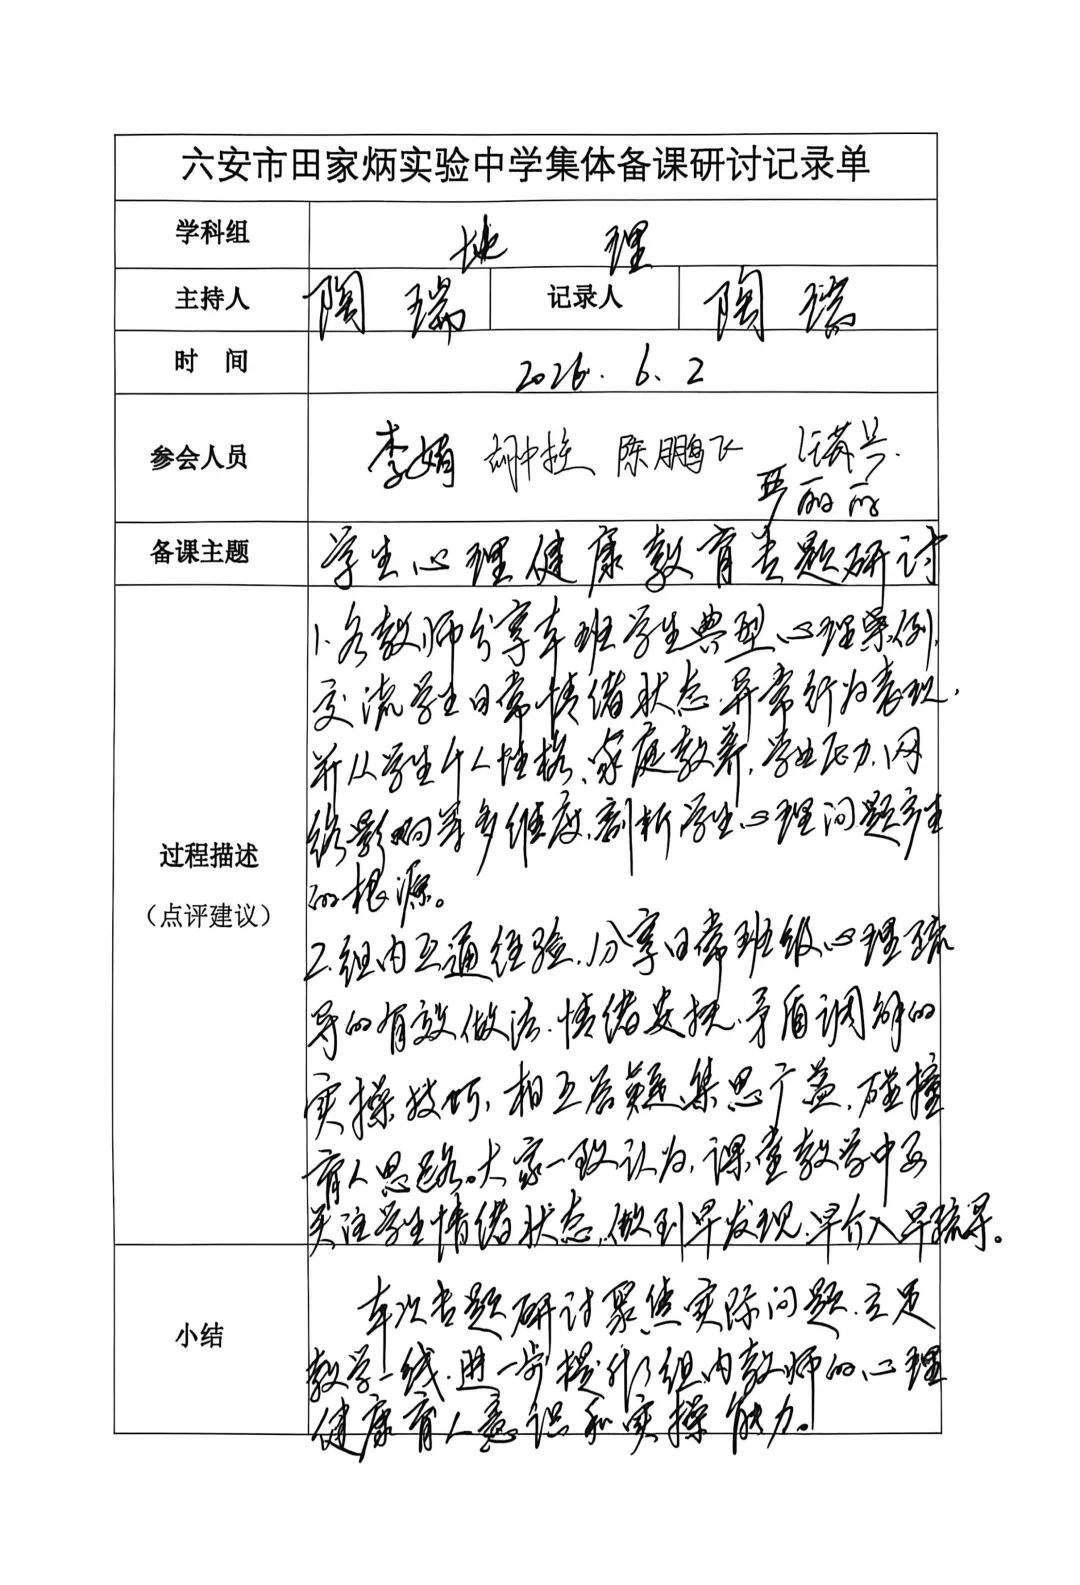 六安市田家炳实验中学集体备课研讨记录单
学科组 地 理
主持人 陶 瑞 记录人 陶 瑞
时 间 2026.6.2
参会人员 李娟 陈鹏飞
丽丽
备课主题 学生心理健康教育专题研讨
过程描述
（点评建议）
1.各教师分享本班学生典型心理案例,
交流学生日常情绪状态、异常行为表现,
并从学生个人性格、家庭教养、学业压力、网
络影响等多维度,剖析学生心理问题产生
的根源。
2.组内互通经验,分享日常班级心理疏
导的有效做法、情绪安抚、矛盾调解的
实操技巧,相互答疑,集思广益,碰撞
育人思路。大家一致认为,课堂教学中要
关注学生情绪状态,做到早发现、早介入早疏导。
小结
本次专题研讨聚焦实际问题,立足
教学一线,进一步提升了组内教师的心理
健康育人意识和实操能力。